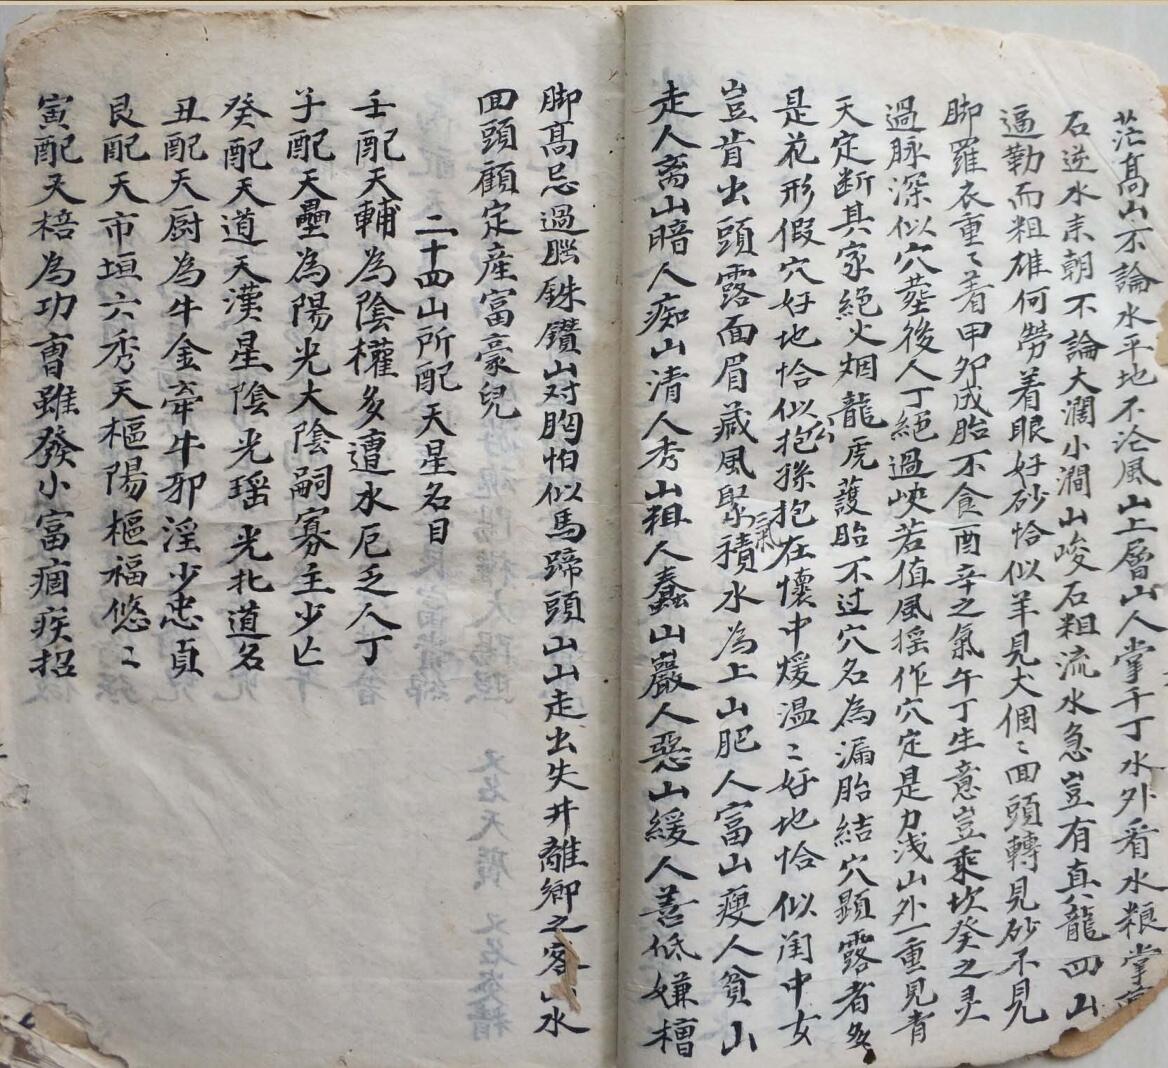 茫高山不論水平地不論風山上層山人掌千丁水外看水粮掌
石逆水来朝不論大澗小澗山峻石粗流水急豈有真龍四山
逼勒而粗雄何勞着眼好砂恰似羊見犬個〻面頭轉見砂不見
脚羅衣重〻着甲夘成胎不食酉辛之氣午丁生意豈乘坎癸之灵
過脉深似穴塟後人丁絕過峽若值風揺作穴定是力浅山外一重見肯
天定断其家絕火烟龍虎護胎不过穴名為漏胎結穴顕露者多
是花形假穴好地恰似抱孫公抱在懷中煖温〻好地恰似闺中女
豈肯出頭露面眉藏風聚氣積水為上山肥人富山瘦人貧山
走人离山暗人痴山清人秀山粗人蠢山巖人惡山緩人善低嫌橧
脚高忌過腦銖鑽山对胸怕似馬蹄頭山山走出失井離鄉之客山水
回頭顧定産富豪兒
二十四山所配天星名目
壬配天輔為陰權多遭水厄乏人丁
子配天壘為陽光大陰嗣寡主少亡
癸配天道天漢星陰光瑶光北道名
丑配天厨為牛金牽牛邪淫少忠貞
艮配天市垣六秀天樞陽樞福悠〻
寅配天棓為功曹雖發小富痼疾招